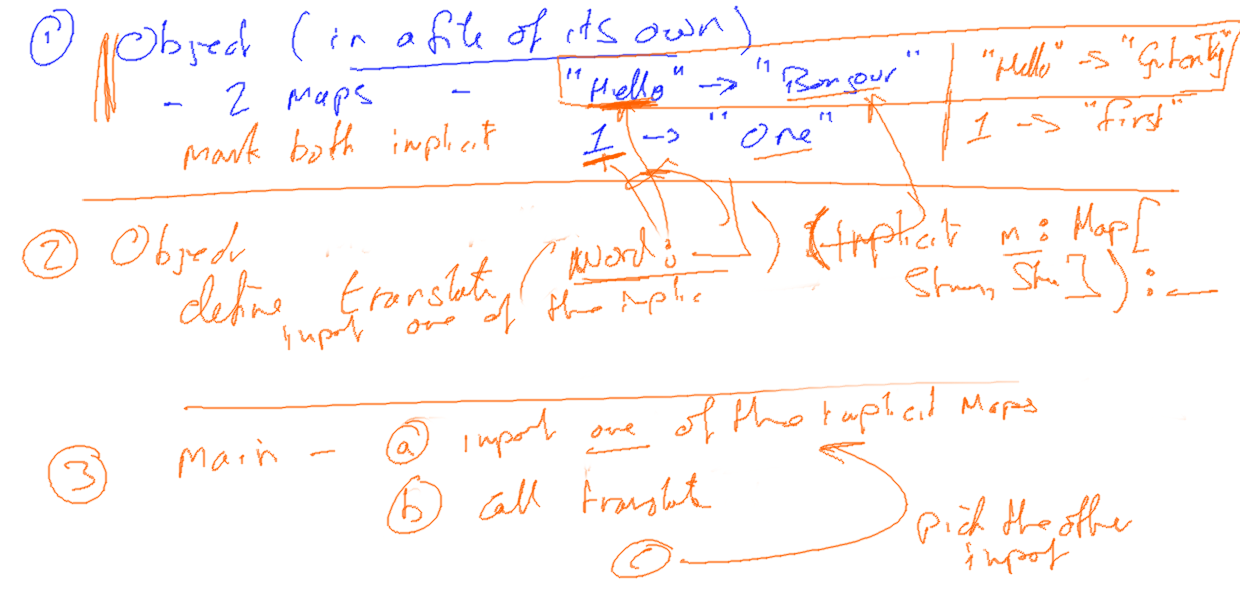 ① Object (in a file of its own)
- 2 Maps - "Hello" -> "Bonjour" | "Hello" -> "Gutentag"
mark both implicit 1 -> "One" | 1 -> "first"
② Object
define translate (word: __) (implicit m: Map[
String, Str]) : __
import one of the implic
③ Main - ⓐ import one of the implicit Maps
ⓑ call translate
pick the other
ⓒ import